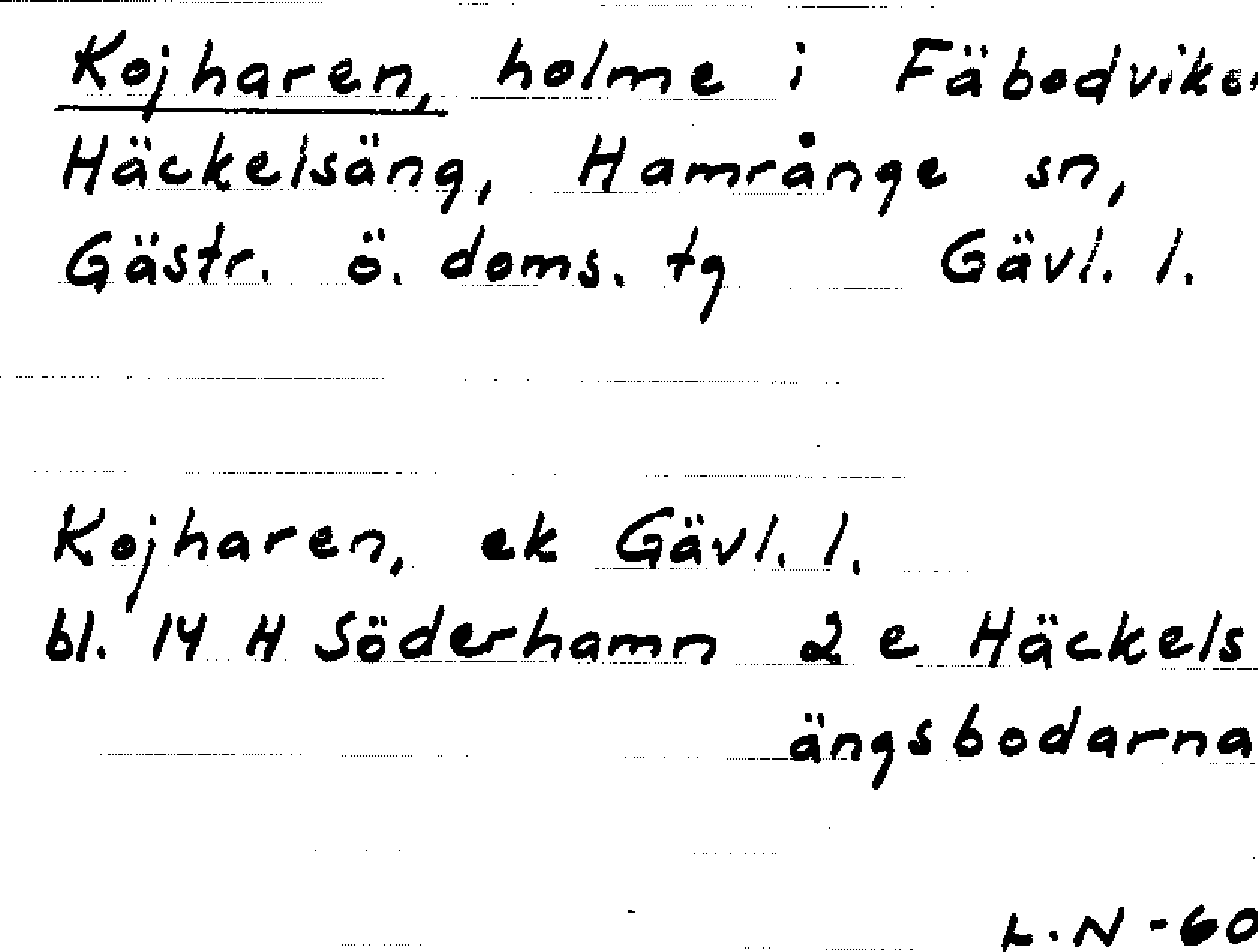 Kojharen, holme i Fäbodviken
Häckelsäng, Hamrånge sn,
Gästr. ö. doms. tg Gävl. l.
Kojharen, ek Gävl. l.
bl. 14 H Söderhamn 2 e Häckels
ängsbodarna
L.N -60